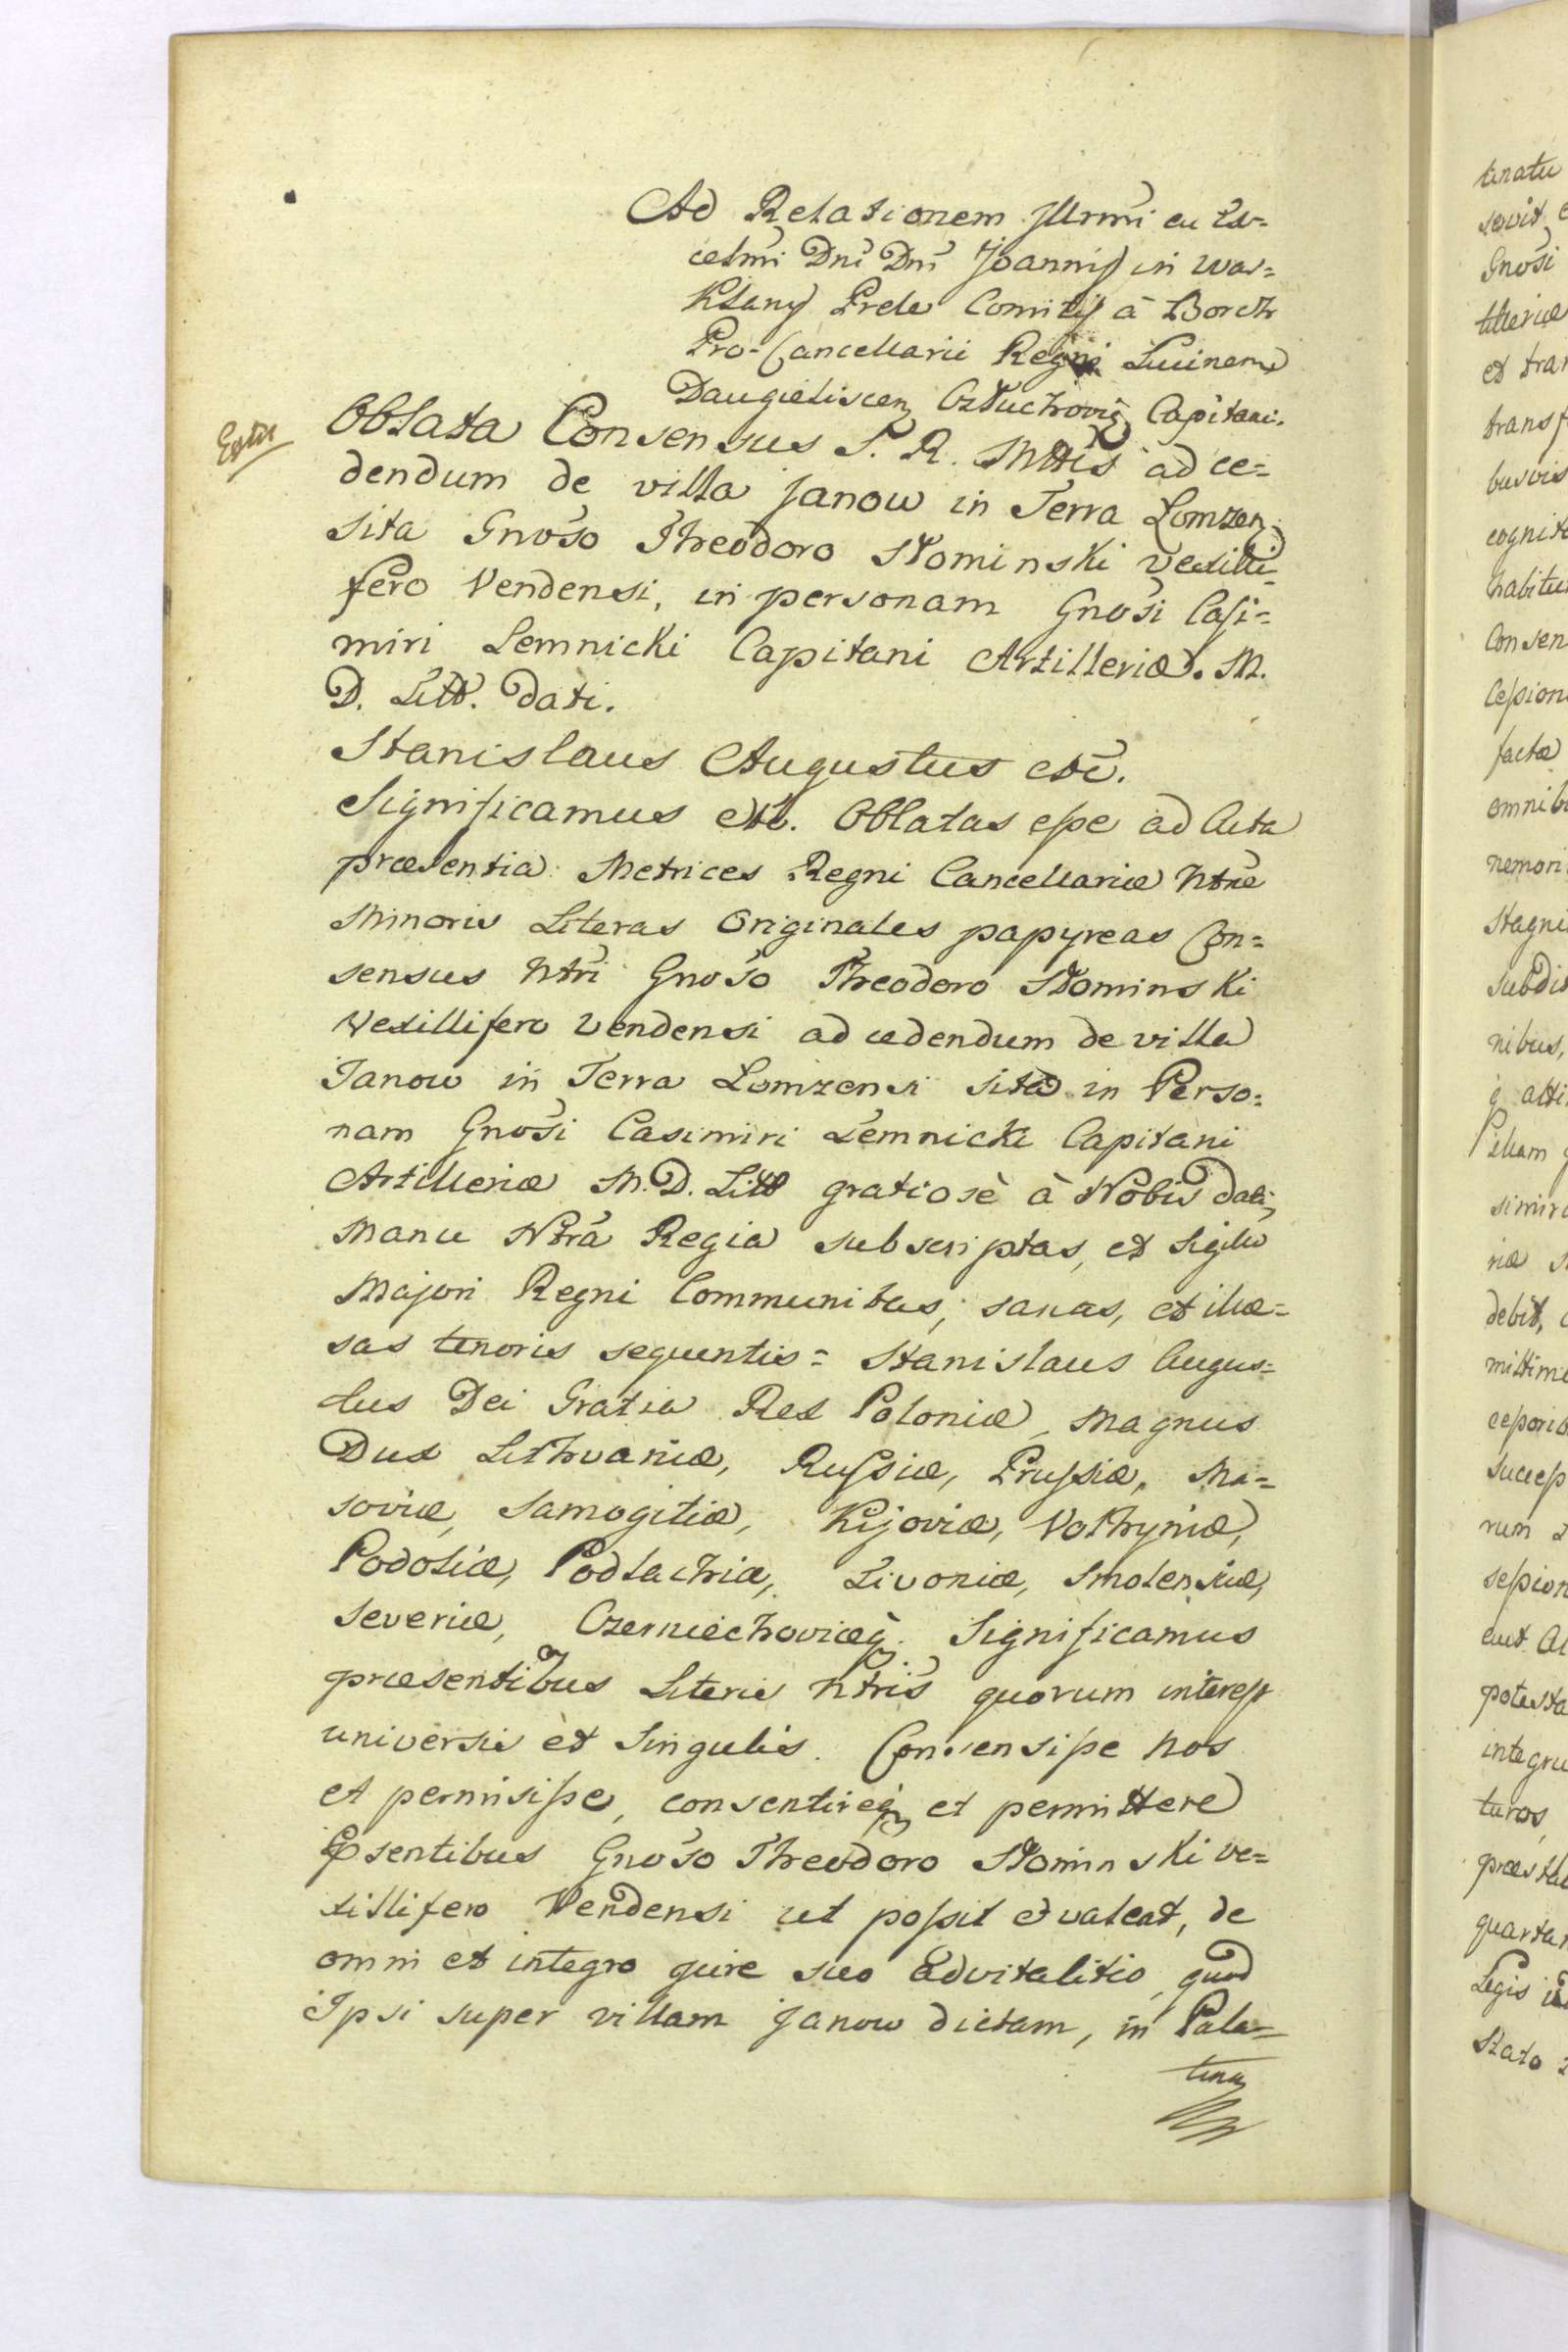 Ad Relationem Illrmi eu Ex=
celmi Dni Dni Joannis in War=
klany Prele Comitis à Borch
Pro-Cancellarii Regni Lucinens
Daugieliscen Człuchovieq Capitani.
Extr
Oblata Consensus S. R. Mttis ad ce=
dendum de villa Janow in Terra Lomzen
sita Gnoso Theodoro Słominski Vexilli=
fero Vendensi, in personam Gnosi Casi=
miri Lemnicki Capitani Artilleriæ. M.
D. Litt. dati.
Stanislaus Augustus etc.
Significamus etc. Oblatas esse ad Acta
præsentia Metrices Regni Cancellariæ Ntræ
Minoris Literas Originales papyreas Con=
sensus Ntri Gnoso Theodoro Słominski
Vexillifero Vendensi ad cedendum de villa
Janow in Terra Lomzensi sita in Perso=
nam Gnosi Casimiri Lemnicki Capitani
Artilleriæ M. D. Litt gratiosè à Nobis dati,
Manu Ntrâ Regia subscriptas, et Sigillo
Majori Regni Communitas, sanas, et illæ=
sas tenoris sequentis = Stanislaus Augus=
tus Dei Gratia Rex Poloniæ, Magnus
Dux Lithvaniæ, Russiæ, Prussiæ, Ma=
soviæ, Samogitiæ, Kijoviæ, Volhyniæ,
Podoliæ, Podlachiæ, Livoniæ, Smolensiæ,
Severiæ, Czerniechoviæq. Significamus
præsentibus Literis Ntris quorum interest
universis et Singulis. Consensisse Nos
et permisisse, consentireq et permittere
Psentibus Gnoso Theodoro Słominski Ve=
xillifero Vendensi ut possit et valeat, de
omni et integro jure suo advitalitio, quod
Ipsi super villam Janow dictam, in Pala=
tina
tinatu
Gnosi
tilleriæ
et tran
transf
busvis
cognit
habitu
Consen
Cession
factæ
omnib
nemori
Stagni
Subdit
nibus,
simir
debit,
mittim
cessorib
success
rum
session
aut
potesta
integru
turos,
quartan
Legis